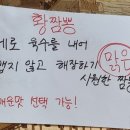 황짬뽕
로 육수를 내어
맵지 않고 해장하기
맑은
시원한 짬
매운맛 선택 가능!